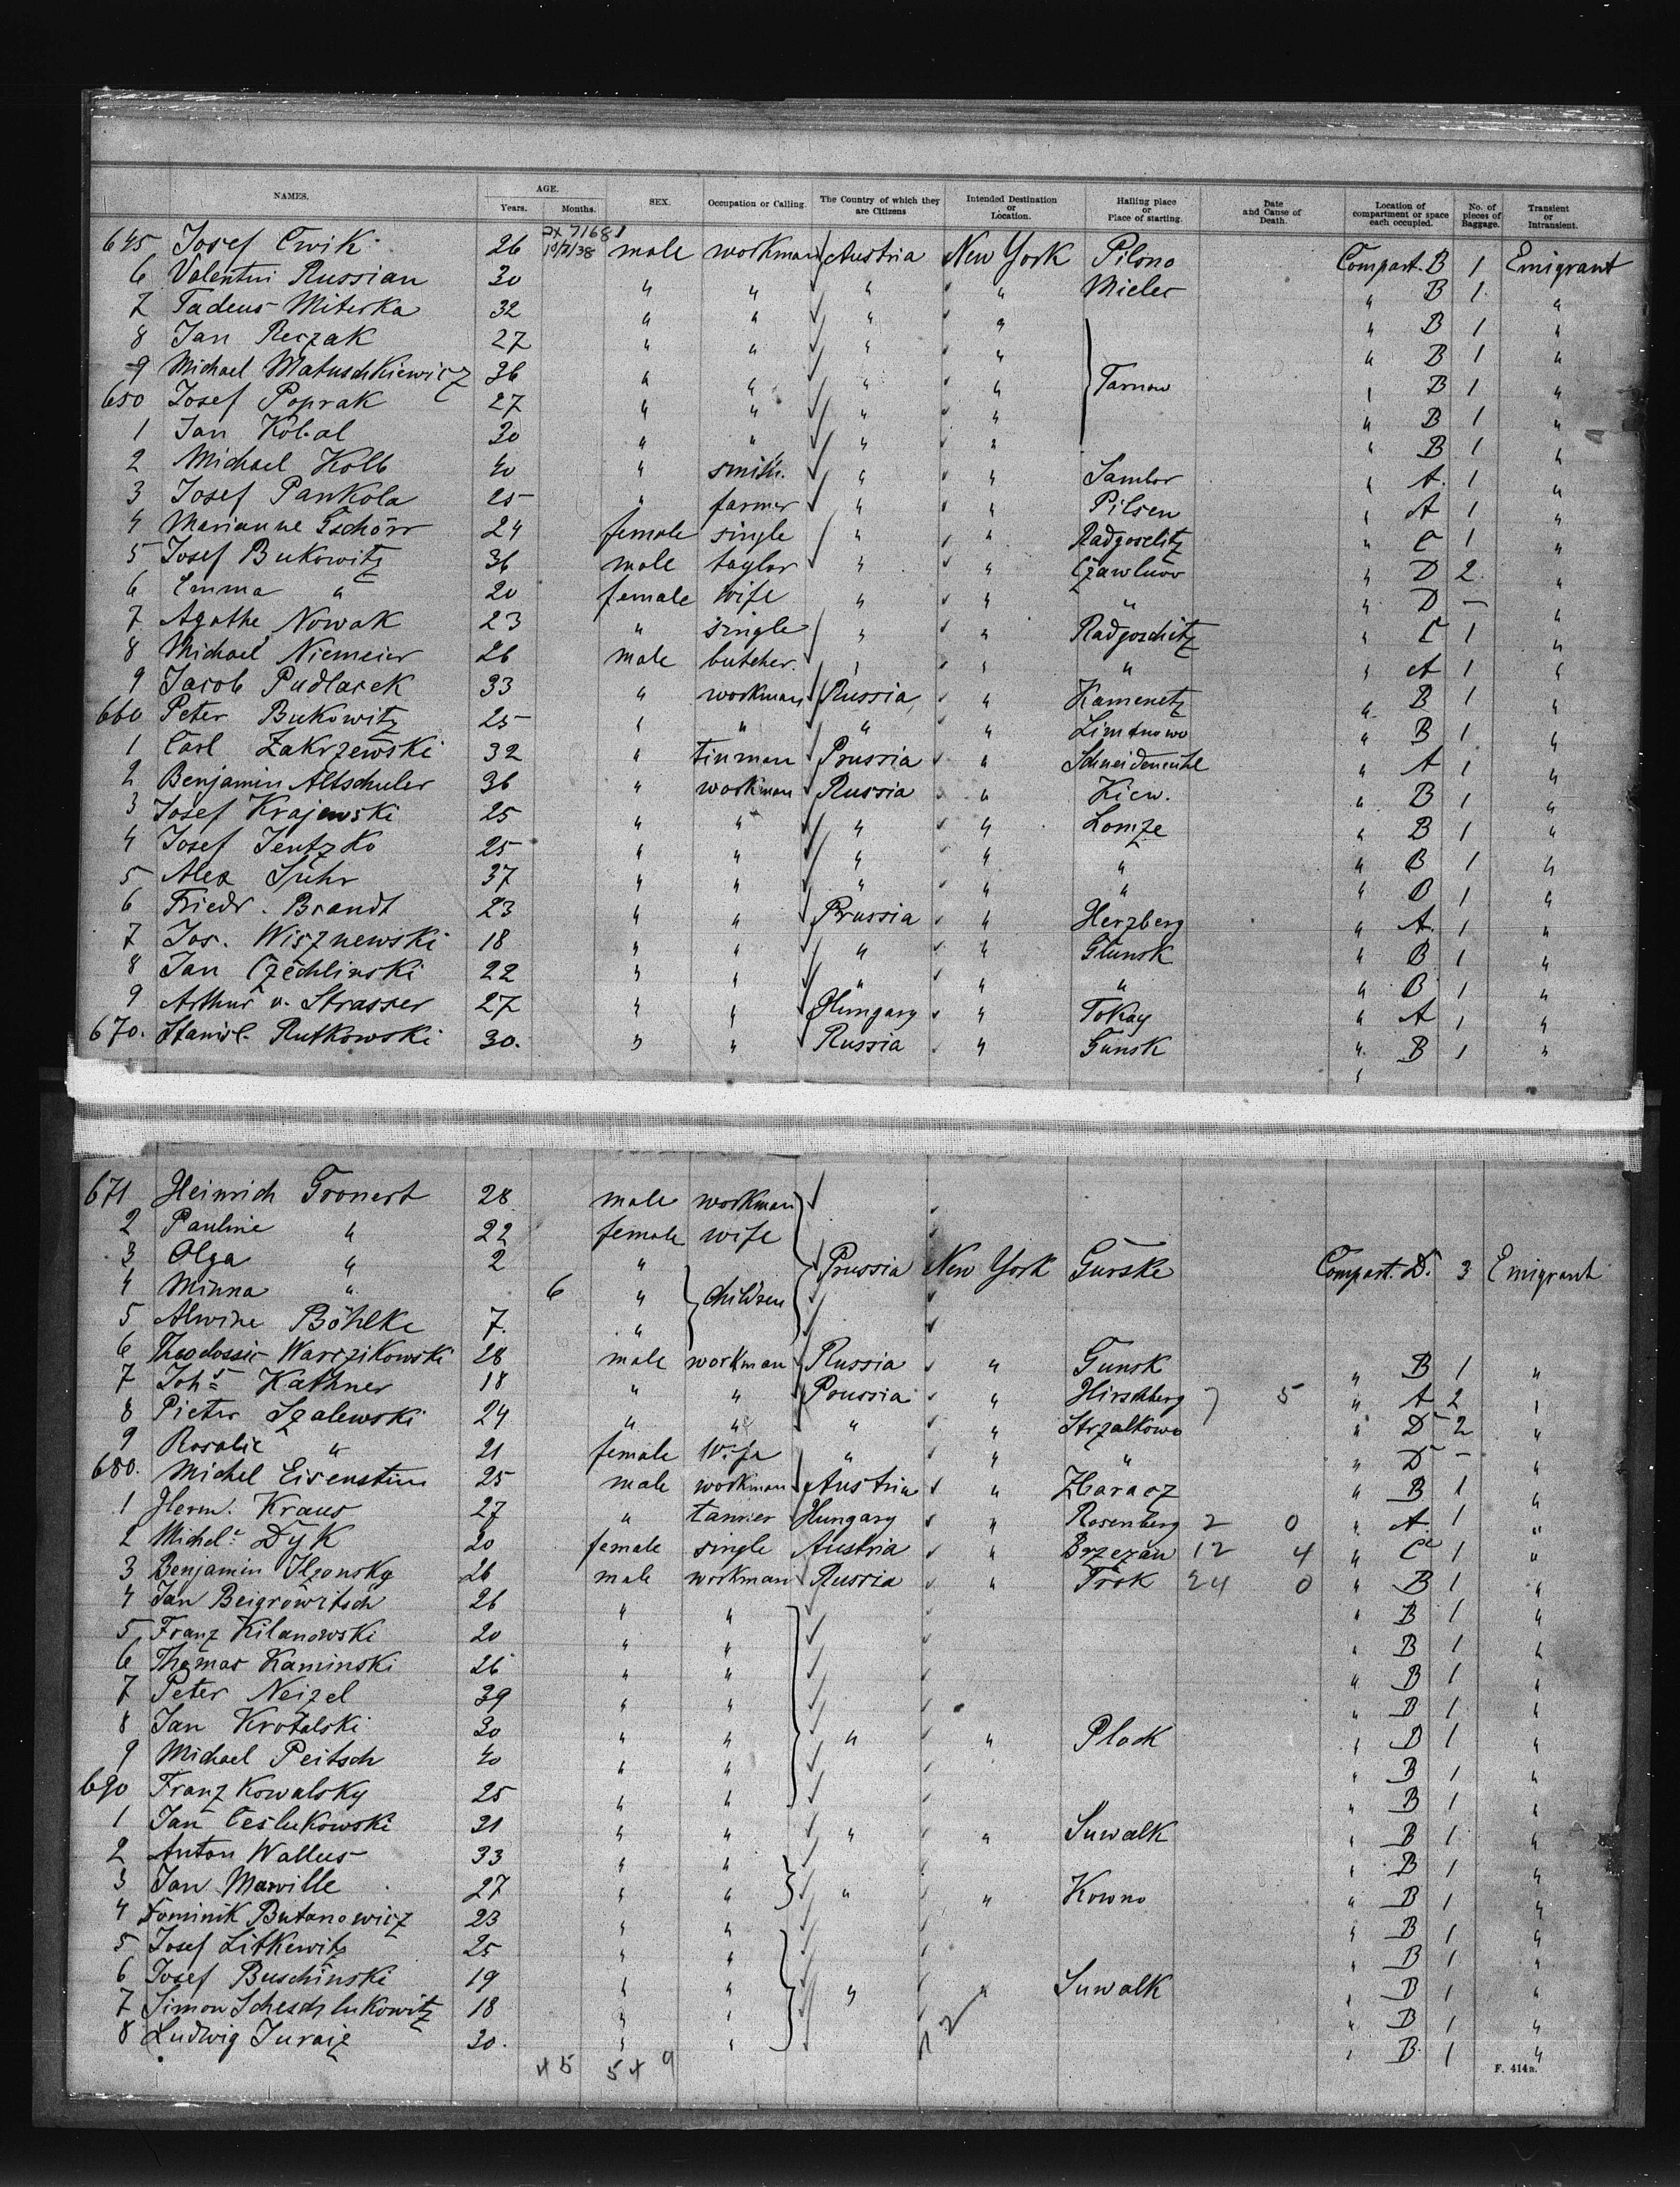 NAMES. AGE. Years. Months. SEX. Occupation or Calling. The Country of which they are Citizens Intended Destination or Location. Hailing place or Place of starting. Date and Cause of Death. Location of compartment or space each occupied. No. of pieces of Baggage. Transient or Intransient.
2x 71681
645 Josef Cwik 26 10/7/38 male workman Austria New York Pilsno Compart. B 1 Emigrant
6 Valentin Russian 30 " " " " Mielec " B 1 "
7 Tadeus Miterka 32 " " " " " B 1 "
8 Jan Reczak 27 " " " " " B 1 "
9 Michael Matuschkiewicz 36 " " " " Tarnow " B 1 "
650 Josef Poprak 27 " " " " " B 1 "
1 Jan Kobal 30 " " " " " B 1 "
2 Michael Kolb 40 " smith. " " Sambor " A. 1 "
3 Josef Pankola 25 " farmer " " Pilsen " A 1 "
4 Marianne Tschörr 24 female single " " Radgoschitz " C 1 "
5 Josef Bukowitz 36 male taylor " " Czawluov " D 2. "
6 Emma " 20 female wife " " " " D — "
7 Agathe Nowak 23 " single " " Radgoschitz " C 1 "
8 Michael Niemeier 26 male butcher. " " " " A 1 "
9 Jacob Pudlarek 33 " workman Russia " Kamenetz " B 1 "
660 Peter Bukowitz 25 " " " " Limanowo " B 1 "
1 Carl Zakrzewski 32 " tinman Prussia " Schneidemühl " A 1 "
2 Benjamin Altschuler 36 " workman Russia " Kiew. " B 1 "
3 Josef Krajewski 25 " " " " Lomze " B 1 "
4 Josef Jentzko 25 " " " " " " B 1 "
5 Alex Suhr 37 " " " " " " B 1 "
6 Friedr. Brandt 23 " " Prussia " Herzberg " A. 1 "
7 Jos. Wisznewski 18 " " " " Glunsk " B 1 "
8 Jan Czechlinski 22 " " " " " " B 1 "
9 Arthur v. Strasser 27 " " Hungary " Tokay " A 1 "
670. Stanisl. Rutkowski 30. " " Russia " Gunsk " B 1 "
671 Heinrich Gronert 28 male workman
2 Pauline " 22 female wife
3 Olga " 2 " Prussia New York Gurske Compart. D. 3 Emigrant
4 Minna " 6 " children
5 Alwine Böhlke 7. "
6 Theodossie Warczikowski 28 male workman Russia " Gunsk " B 1 "
7 Johs Kathner 18 " " Prussia " Hirschberg 7 5 " A 2 "
8 Pieter Szalewski 24 " " " " Strzalkowo " D 2 "
9 Rosalie " 21 female Wife " " " " D — "
680. Michel Eisenstein 25 male workman Austria " Zbaracz " B 1 "
1 Herm. Kraus 27 " tanner Hungary " Rosenberg 2 0 " A. 1 "
2 Michel. Dyk 20 female single Austria " Brzezan 12 4 " C 1 "
3 Benjamin Ilzonsky 26 male workman Russia " Trok 24 0 " B 1 "
4 Jan Beigrowitsch 26 " " " B 1 "
5 Franz Kilanowski 20 " " " B 1 "
6 Thomas Kaminski 26 " " " B 1 "
7 Peter Neizel 39 " " " B 1 "
8 Jan Krotalski 30 " " " " Plock " B 1 "
9 Michael Peitsch 40 " " " B 1 "
690 Franz Kowalsky 25 " " " B 1 "
1 Jan Ceslukowski 21 " " " " Suwalk " B 1 "
2 Anton Wallus 33 " " " B 1 "
3 Jan Marville 27 " " " " Kowno " B 1 "
4 Dominik Butanowicz 23 " " " B 1 "
5 Josef Litkewitz 25 " " " B 1 "
6 Josef Buschinski 19 " " " " Suwalk " B 1 "
7 Simon Scheschlukowitz 18 " " " B 1 "
8 Ludwig Juraiz 30. " " " B. 1 "
45 54 9
F. 414a.